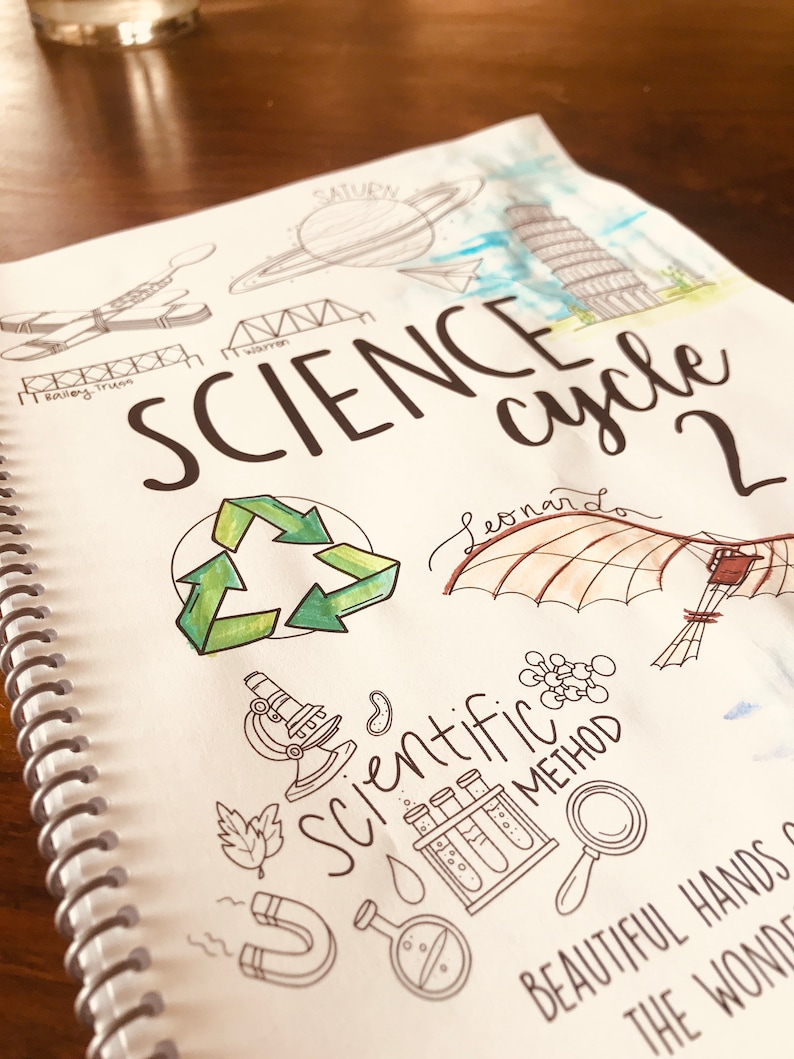 SATURN
Bailey Truss
Warren
SCIENCE
cycle
2
Leonardo
scientific
METHOD
BEAUTIFUL HANDS
THE